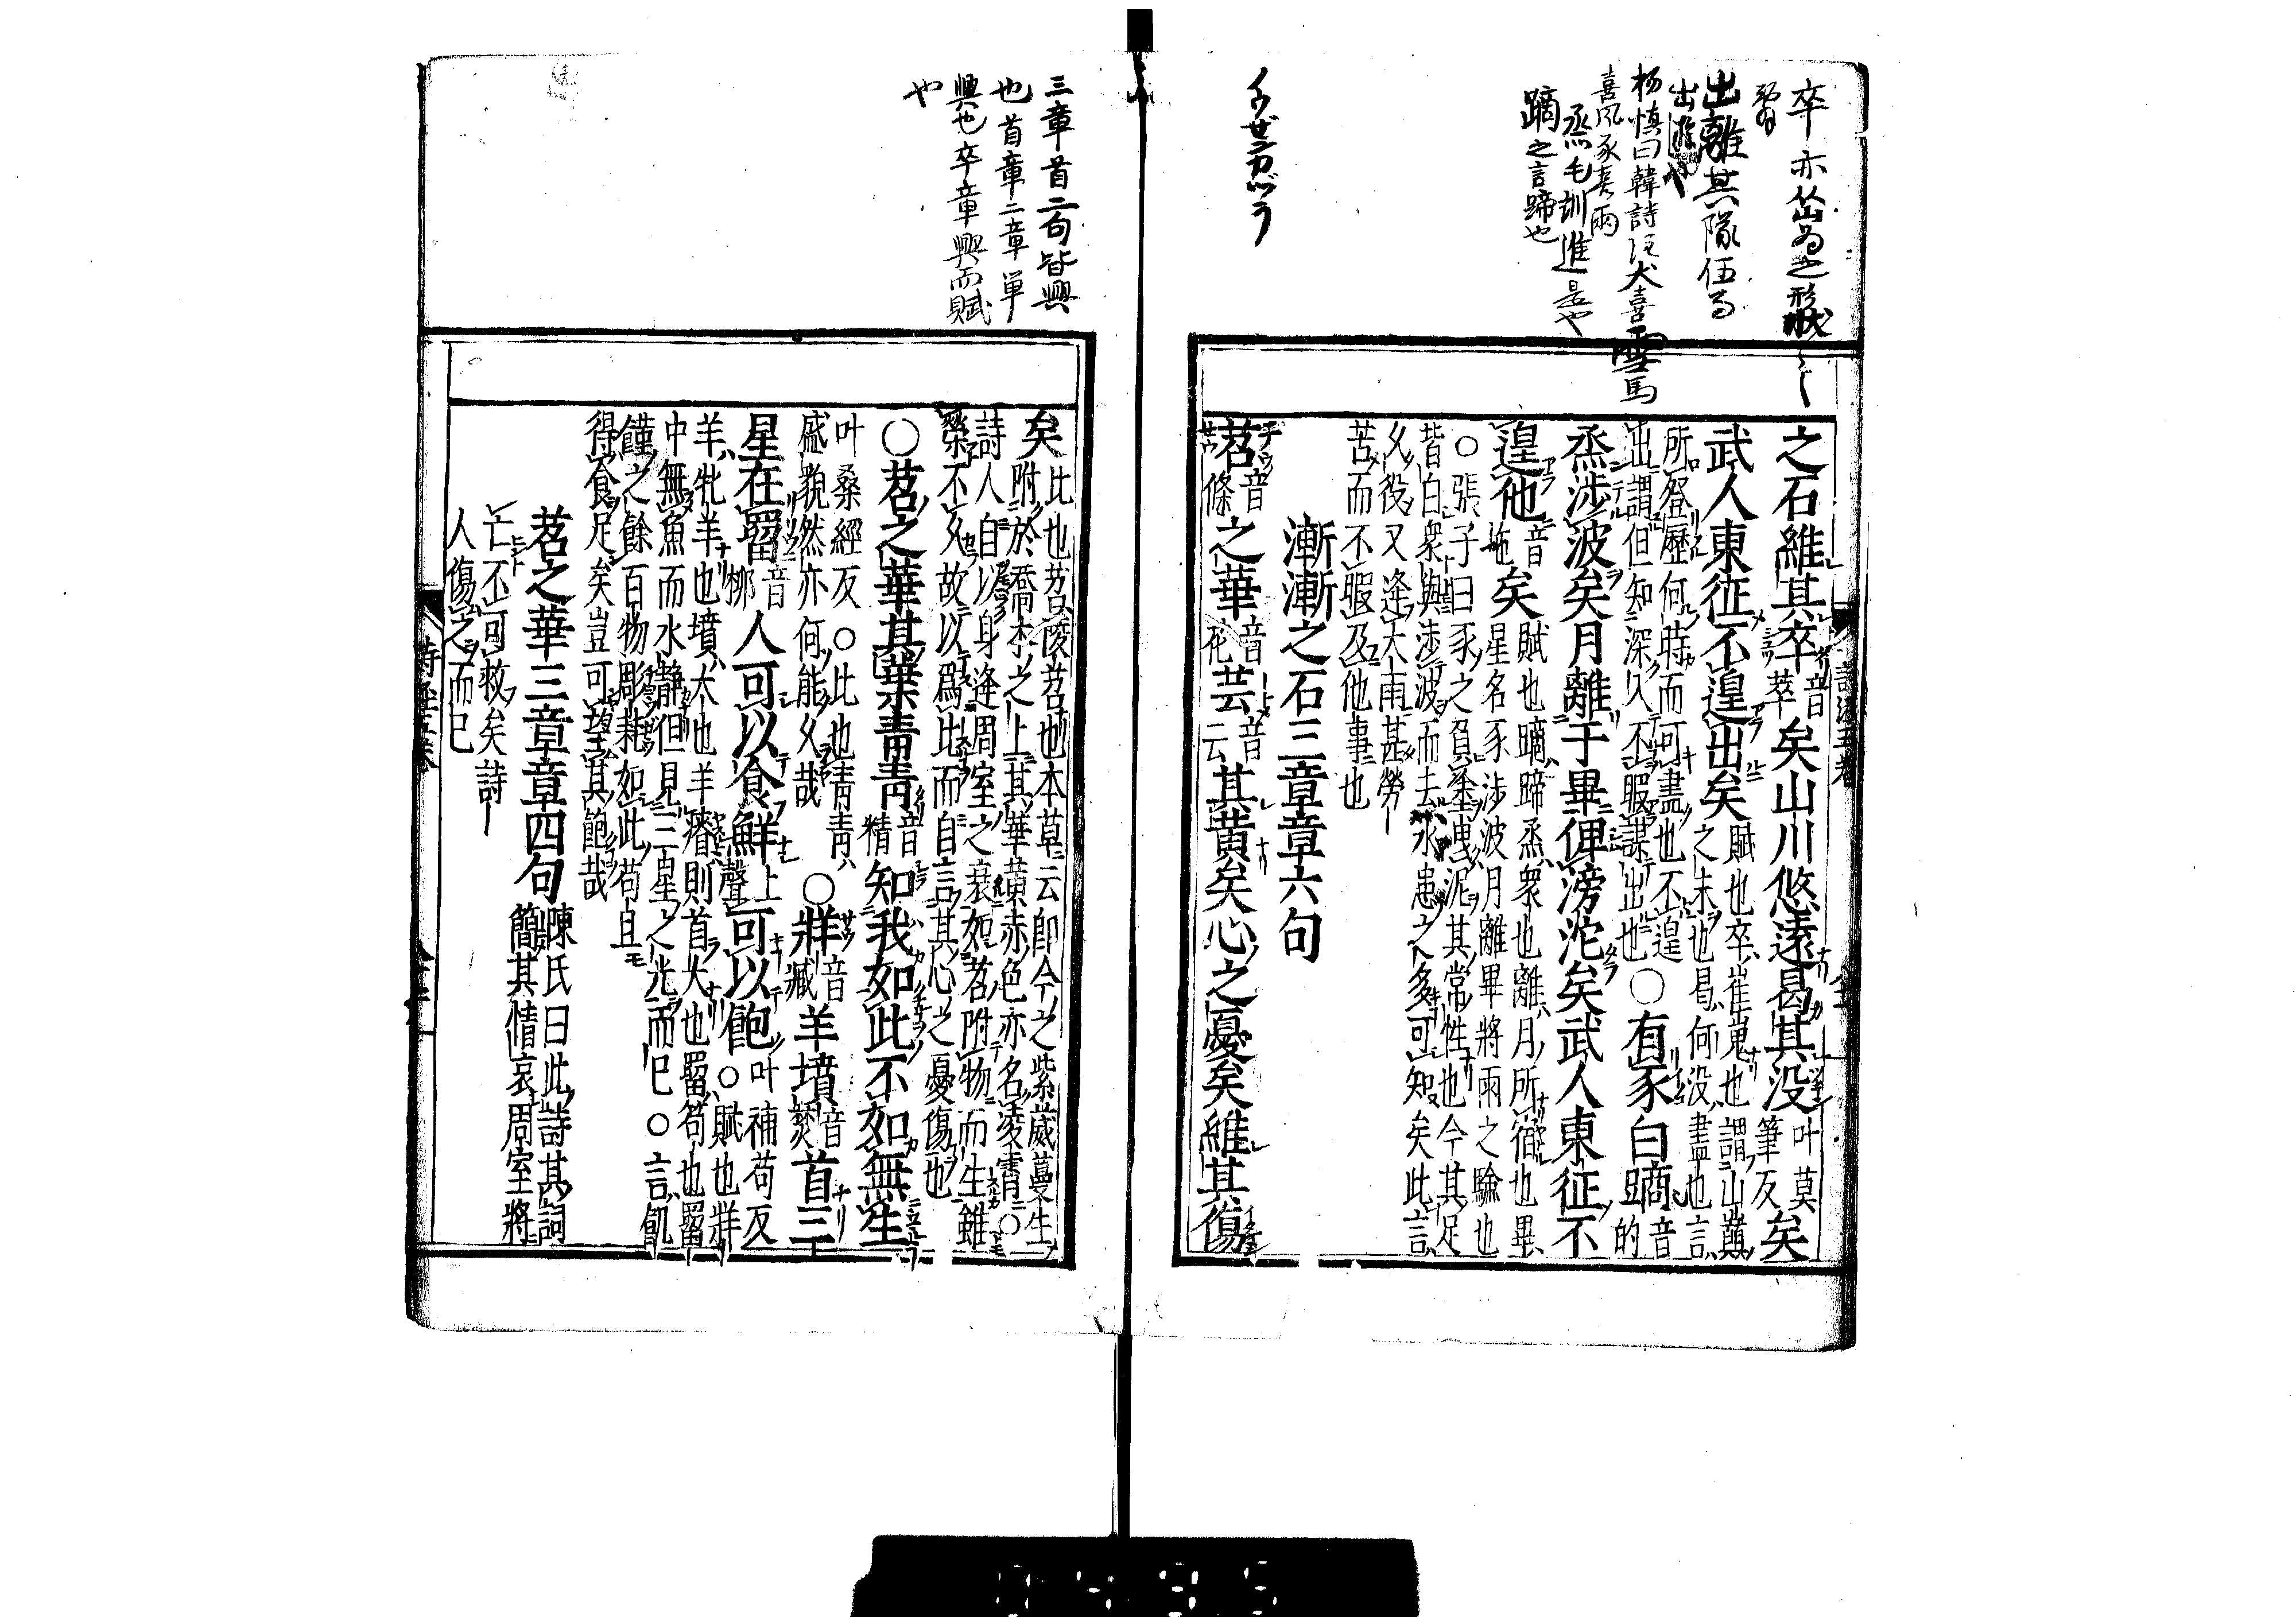 卒亦
出離其隊伍
楊慎曰韓詩注犬喜雪馬
喜風豕喜雨
烝毛訓進是也
蹢之言蹄也
之石維其卒音萃矣山川悠遠曷其没叶莫筆反矣
武人東征不遑出矣賦也卒崔嵬也謂山巔之末也曷何没盡也言
所登歷何時而可盡也不遑出謂但知深入不暇謀出也○有豕白蹢音的
烝涉波矣月離于畢俾滂沱矣武人東征不
遑他音拖矣賦也蹢蹄烝衆也離月所宿也畢星名豕涉波月離畢將雨之驗也
○張子曰豕之負塗曳泥其常性也今其足
皆白衆與涉波而去水患之多可知矣此言
久役又逢大雨甚勞
苦而不暇及他事也
漸漸之石三章章六句
苕音條之華音花芸音云其黃矣心之憂矣維其傷
三章首二句皆興
也首章二章單
興也卒章興而賦
也
矣比也苕陵苕也本草云即今之紫葳蔓生
附於喬木之上其華黃赤色亦名凌霄○
詩人自以身逢周室之衰如苕附物而生雖
榮不久故以爲比而自言其心之憂傷也
○苕之華其葉青青音精知我如此不如無生
叶桑經反○比也青青盛貌然亦何能久哉○牂音臧羊墳音焚首三
星在罶音柳人可以食鮮上聲可以飽叶補苟反○賦也牂
羊牝羊也墳大也羊瘠則首大也罶笱也罶
中無魚而水靜但見三星之光而已○言饑
饉之餘百物彫耗如此苟且
得食足矣豈可望其飽哉
苕之華三章章四句陳氏曰此詩其詞簡其情哀周室將
亡不可救矣詩
人傷之而已